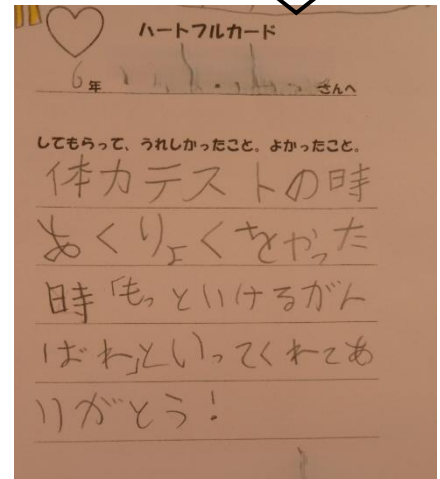 ハートフルカード
6年
さんへ
してもらって、うれしかったこと。よかったこと。
体力テストの時
あくりょくをやった
時「もっといけるがん
ばれ」といってくれてあ
りがとう!